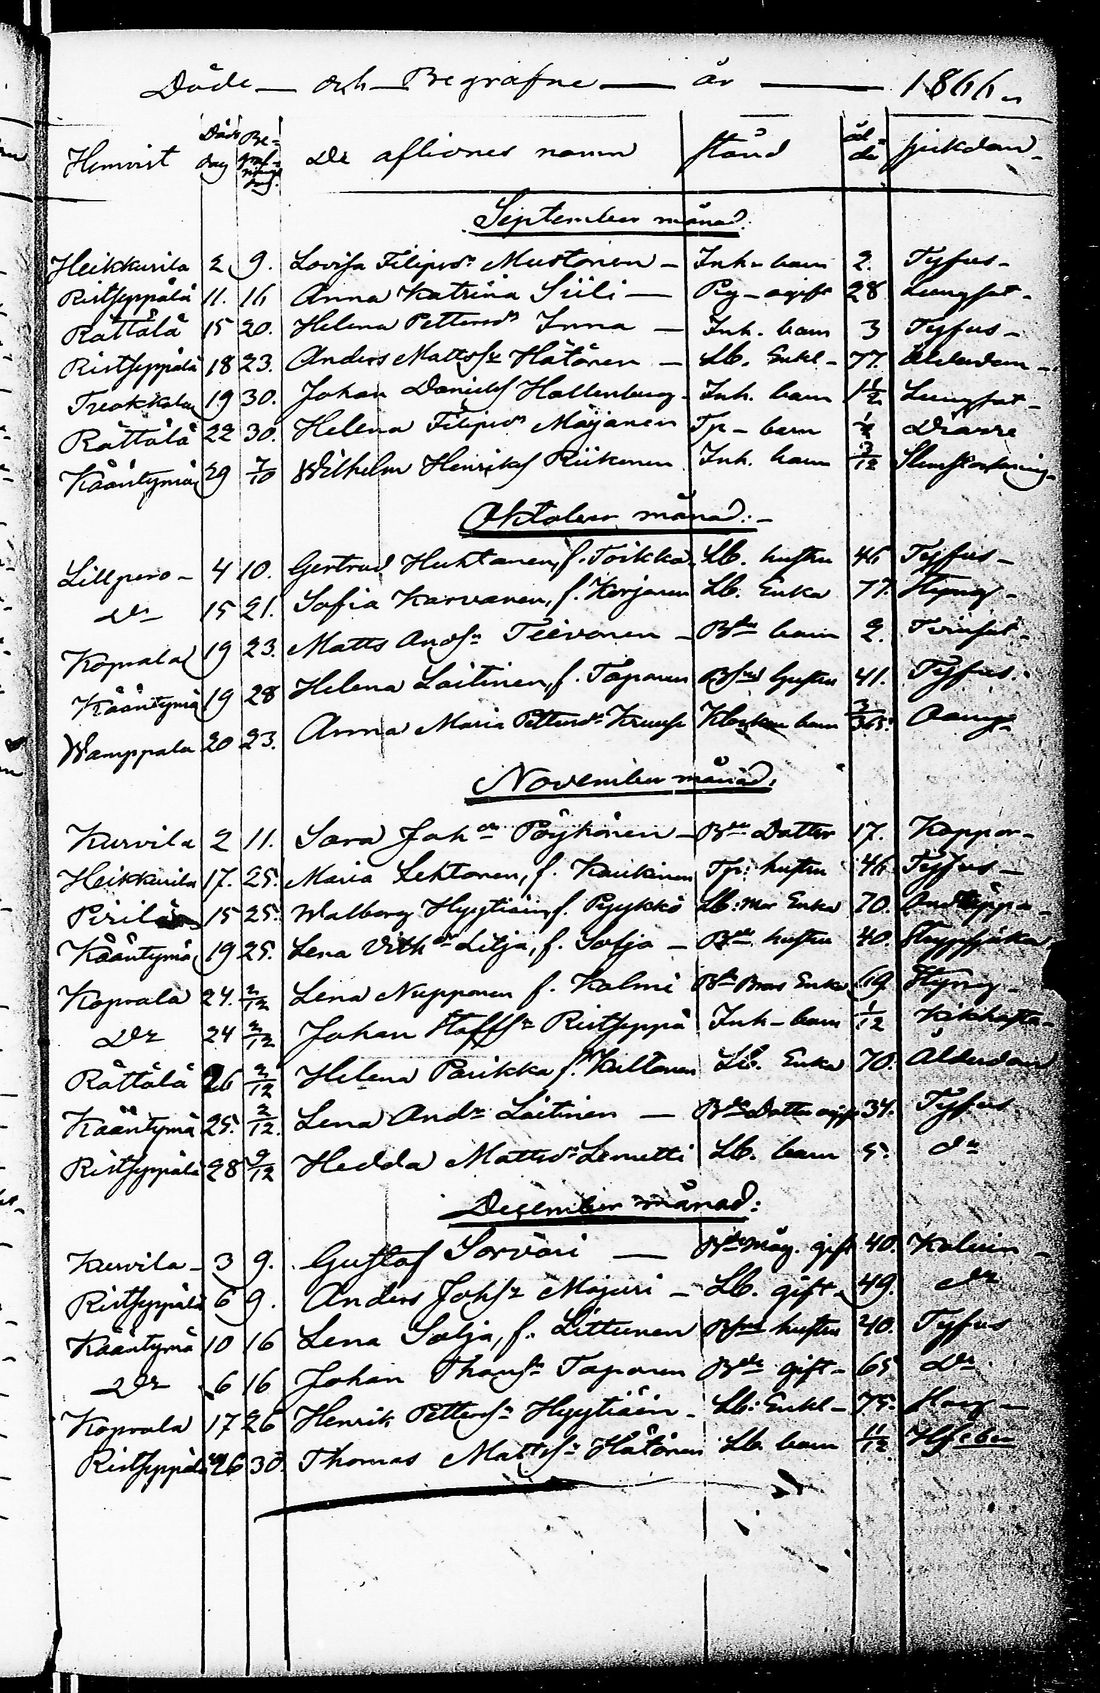 Döde och Begrafne år 1866
Hemvist Döds dag Begrafnings dag De aflidnes namn stånd ålder sjukdom
September månad.
Heikkurila 2 9. Lovisa Filipsdr Mustonen — Inh. barn 2. Tyfus —
Ristseppälä 11. 16 Anna Katrina Siili — Pig — ogift 28 Lungsot.
Rättälä 15 20. Helena Pettersdr Inna — Inh. barn 3 Tyfus —
Ristseppälä 18 23. Anders Mattss Hätönen — Lb. Enkl — 77. Ålderdom —
Treokkala 19 30. Johan Daniels Hallenberg. Inh. barn 1½ Lungsot —
Rättälä 22 30. Helena Filipsdr Mäyänen Tp — barn Diarre
Kääntymä 29 7/10 Wilhelm Henriks Riikonen Inh. barn 3/12
Oktober månad. —
Lillpero — 4 10. Gertrud Huhtanen, f. Toikka. Lb. hustru 46 Tyfus —
Do 15 21. Sofia Karvanen, f. Kerjonen Lb. Enka 77. Styng —
Koprala 19 23. Matts Andss Teivonen — Bde barn 2. Tvinsot.
Kääntymä 19 28 Helena Laitinen, f. Taponen hustru 41. Tyfus.
Wamppala 20 23. Anna Maria Pettersdr Kruuse barn 3/365.
November månad.
Kurvila 2 11. Sara Johdr Pöyhönen — Bde Dotter 17. Koppor —
Heikkurila 17. 25. Maria Lehtonen, f. Kaukinen Tp: hustru 46 Tyfus —
Pirilä 15 25. Walborg Hyytiäin, f. Pyykkö Lb: Mor Enka 70.
Kääntymä 19 25. Lena Vilhdr Lilja, f. Solja — Bde hustru 40.
Koprala 24. 2/12 Lena Nupponen f. Kolmi Enka 69. Styng —
Do 24 2/12 Johan Staffss Ristseppä Inh — barn 1/12 Kikhosta —
Rättälä 26 2/12 Helena Parikka f. Kultanen Lb. Enka 70. Ålderdom
Kääntymä 25. 2/12. Lena Anddr Laitinen — Bde Dotter ogift 34. Tyfus
Ristseppälä 28 9/12 Hedda Mattsdr Lemetti Lb. barn 5. do
December månad:
Kurvila — 3 9. Gustaf Sorvari — Bde Måg. gift 40. Kolerin —
Ristseppälä 6 9. Anders Johss Majuri — Lb. gift 49. do
Kääntymä 10 16 Lena Solja, f. Littunen hustru 40. Tyfus
Do 6 16 Johan Thomss Taponen Bde gift — 65 Do
Koprala 17 26 Henrik Petterss Hyytiäin — Lb: Enkl — 75.
Ristseppälä 26 30. Thomas Mattss Hätönen Lb barn 11/12